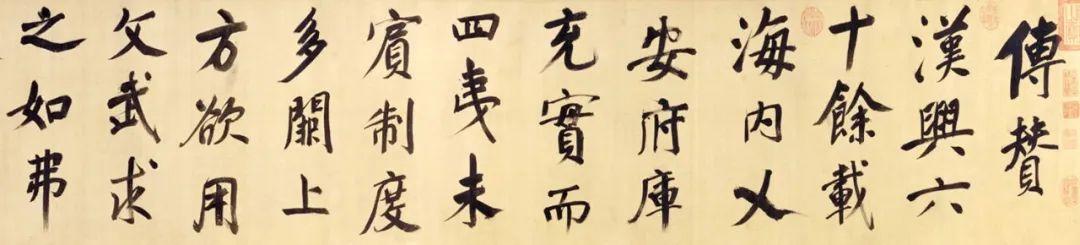 傳贊
漢興六
十餘載
海内乂
安府庫
充實而
四夷未
賓制度
多闕上
方欲用
文武求
之如弗